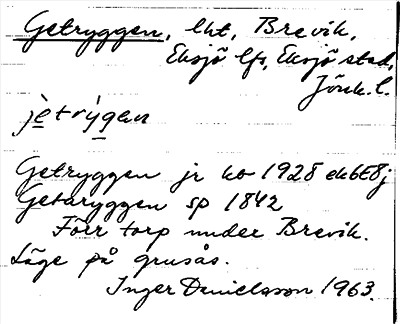 Getryggen, lht, Brevik,
Eksjö lfs, Eksjö stad,
Jönk. l.
jètrỳgen
Getryggen jr ko 1928 ek6E8j
Getaryggen sp 1842
Förr torp under Brevik.
Läge på grusås.
Inger Danielsson 1963.